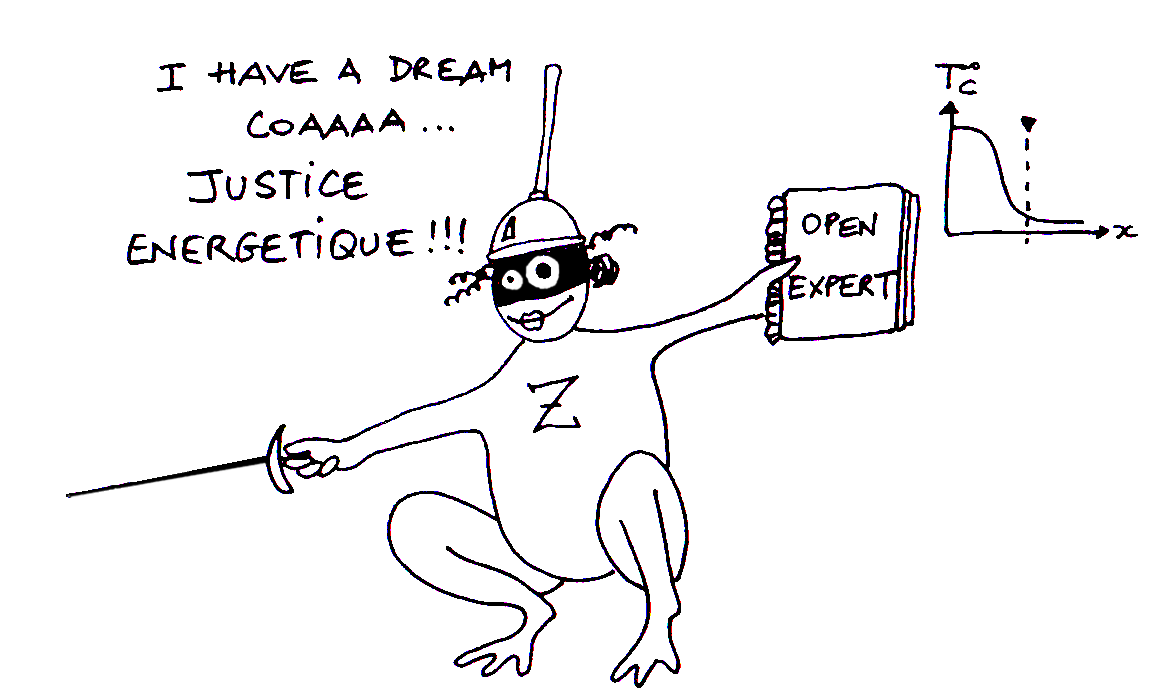 I HAVE A DREAM
COAAAA...
JUSTiCE
ENERGETiQUE!!!
OPEN
EXPERT
Z
T°c
x